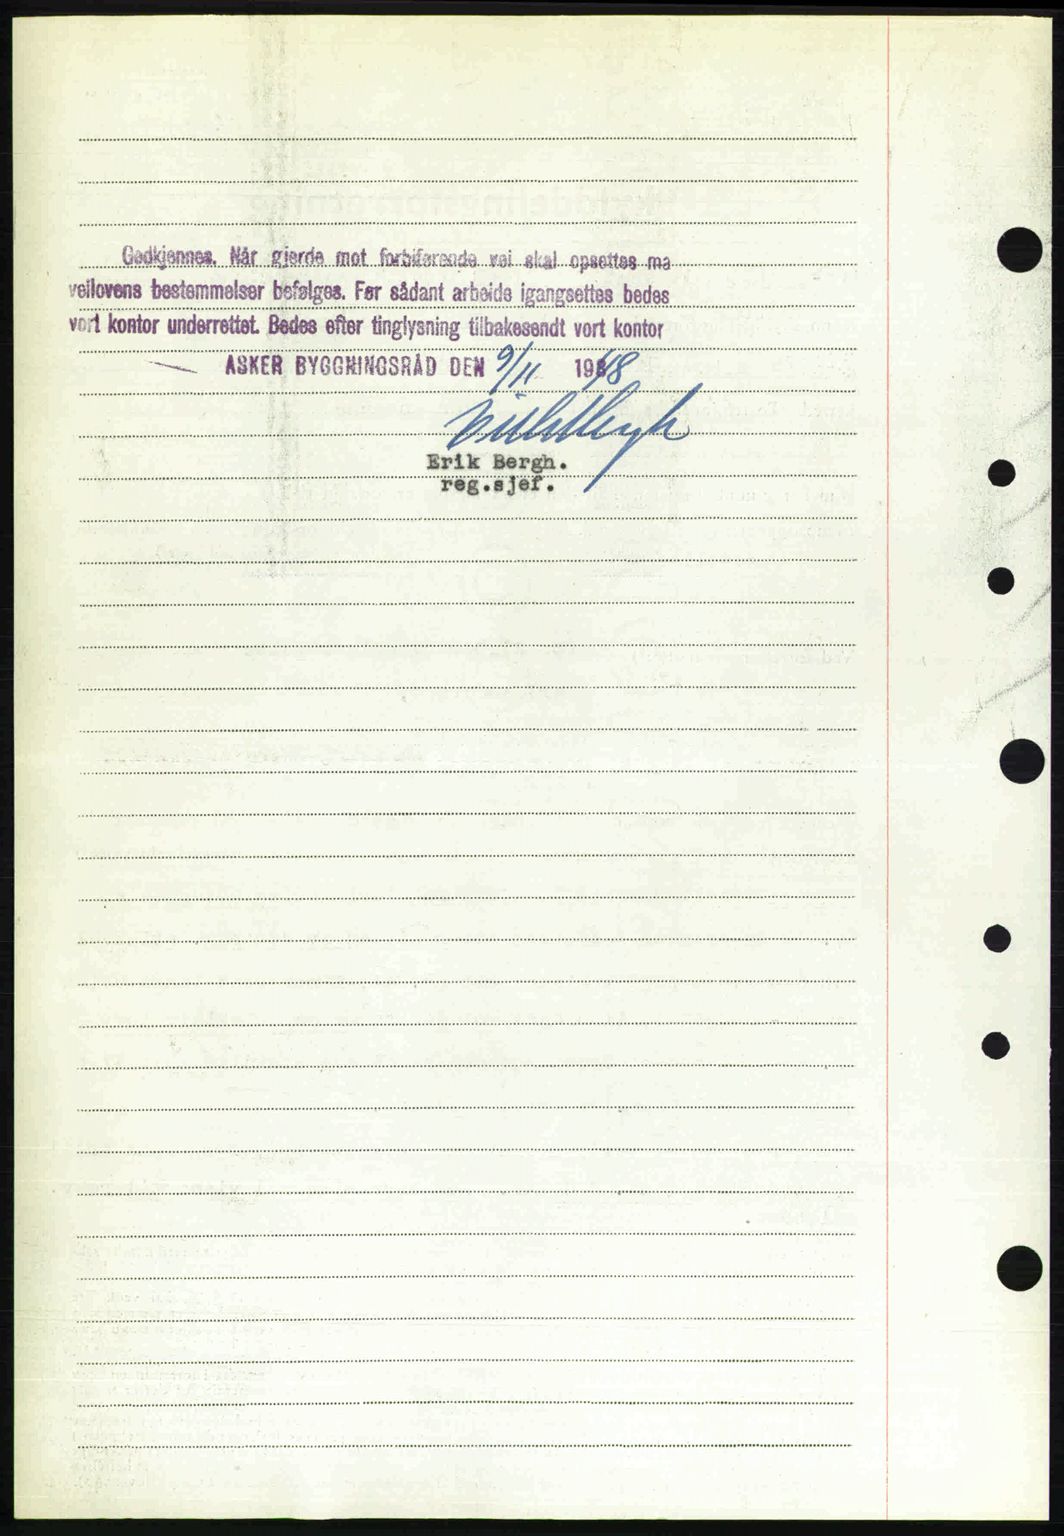 Godkjennes. Når gjerde mot forbiførende vei skal opsettes må
veilovens bestemmelser befølges. Før sådant arbeide igangsettes bedes
vort kontor underrettet. Bedes efter tinglysning tilbakesendt vort kontor
ASKER BYGGNINGSRÅD DEN 9/11 1948
Erik Bergh
Erik Bergh.
reg.sjef.